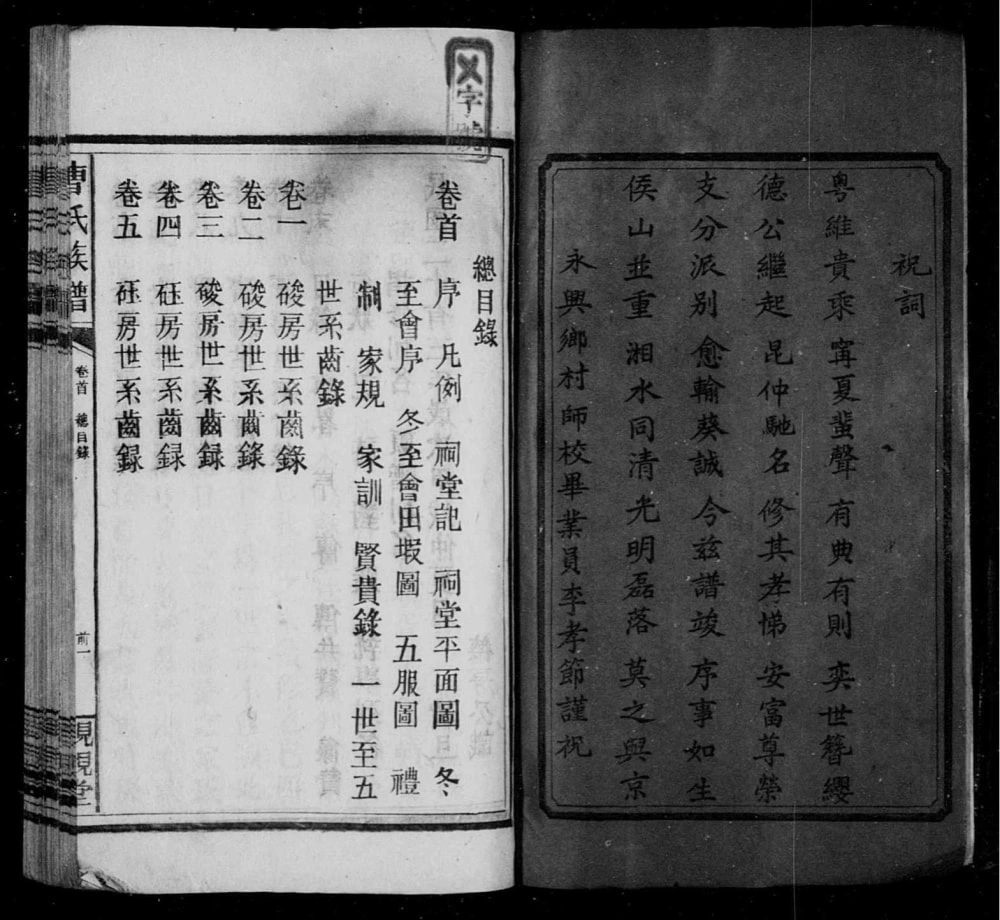 祝詞
粵維貴乘 甯夏蜚聲 有典有則 奕世簪纓
德公繼起 昆仲馳名 修其孝悌 安富尊榮
支分派別 愈輸葵誠 今兹譜竣 序事如生
侯山並重 湘水同清 光明磊落 莫之與京
永興鄉村師校畢業員李孝節謹祝
乂字號
總目錄
卷首 序 凡例 祠堂記 祠堂平面圖 冬
至會序 冬至會田塅圖 五服圖 禮
制 家規 家訓 賢貴錄 一世至五
世系齒錄
卷一 䂭房世系齒錄
卷二 䂭房世系齒錄
卷三 䂭房世系齒録
卷四 砡房世系齒録
卷五 砡房世系齒録
曹氏族譜
卷首 總目錄
前一